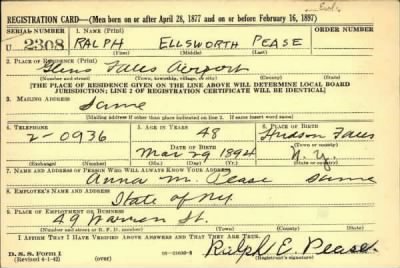 REGISTRATION CARD—(Men born on or after April 28, 1877 and on or before February 16, 1897)
SERIAL NUMBER 1. NAME (Print) ORDER NUMBER
U 2308 RALPH ELLSWORTH PEASE
(First) (Middle) (Last)
2. PLACE OF RESIDENCE (Print)
Glens Falls Airport
(Number and street) (Town, township, village, or city) (County) (State)
[THE PLACE OF RESIDENCE GIVEN ON THE LINE ABOVE WILL DETERMINE LOCAL BOARD
JURISDICTION; LINE 2 OF REGISTRATION CERTIFICATE WILL BE IDENTICAL]
3. MAILING ADDRESS
Same
[Mailing address if other than place indicated on line 2. If same insert word same]
4. TELEPHONE 5. AGE IN YEARS 6. PLACE OF BIRTH
2-0936 48 Hudson Falls
DATE OF BIRTH (Town or county)
Mar 29 1894 N.Y.
(Exchange) (Number) (Mo.) (Day) (Yr.) (State or country)
7. NAME AND ADDRESS OF PERSON WHO WILL ALWAYS KNOW YOUR ADDRESS
Anna M. Pease Same
8. EMPLOYER'S NAME AND ADDRESS
State of N.Y.
9. PLACE OF EMPLOYMENT OR BUSINESS
49 Warren St.
(Number and street or R. F. D. number) (Town) (County) (State)
I AFFIRM THAT I HAVE VERIFIED ABOVE ANSWERS AND THAT THEY ARE TRUE.
D. S. S. Form 1
(Revised 4-1-42) (over)
Ralph E. Pease
(Registrant's signature)